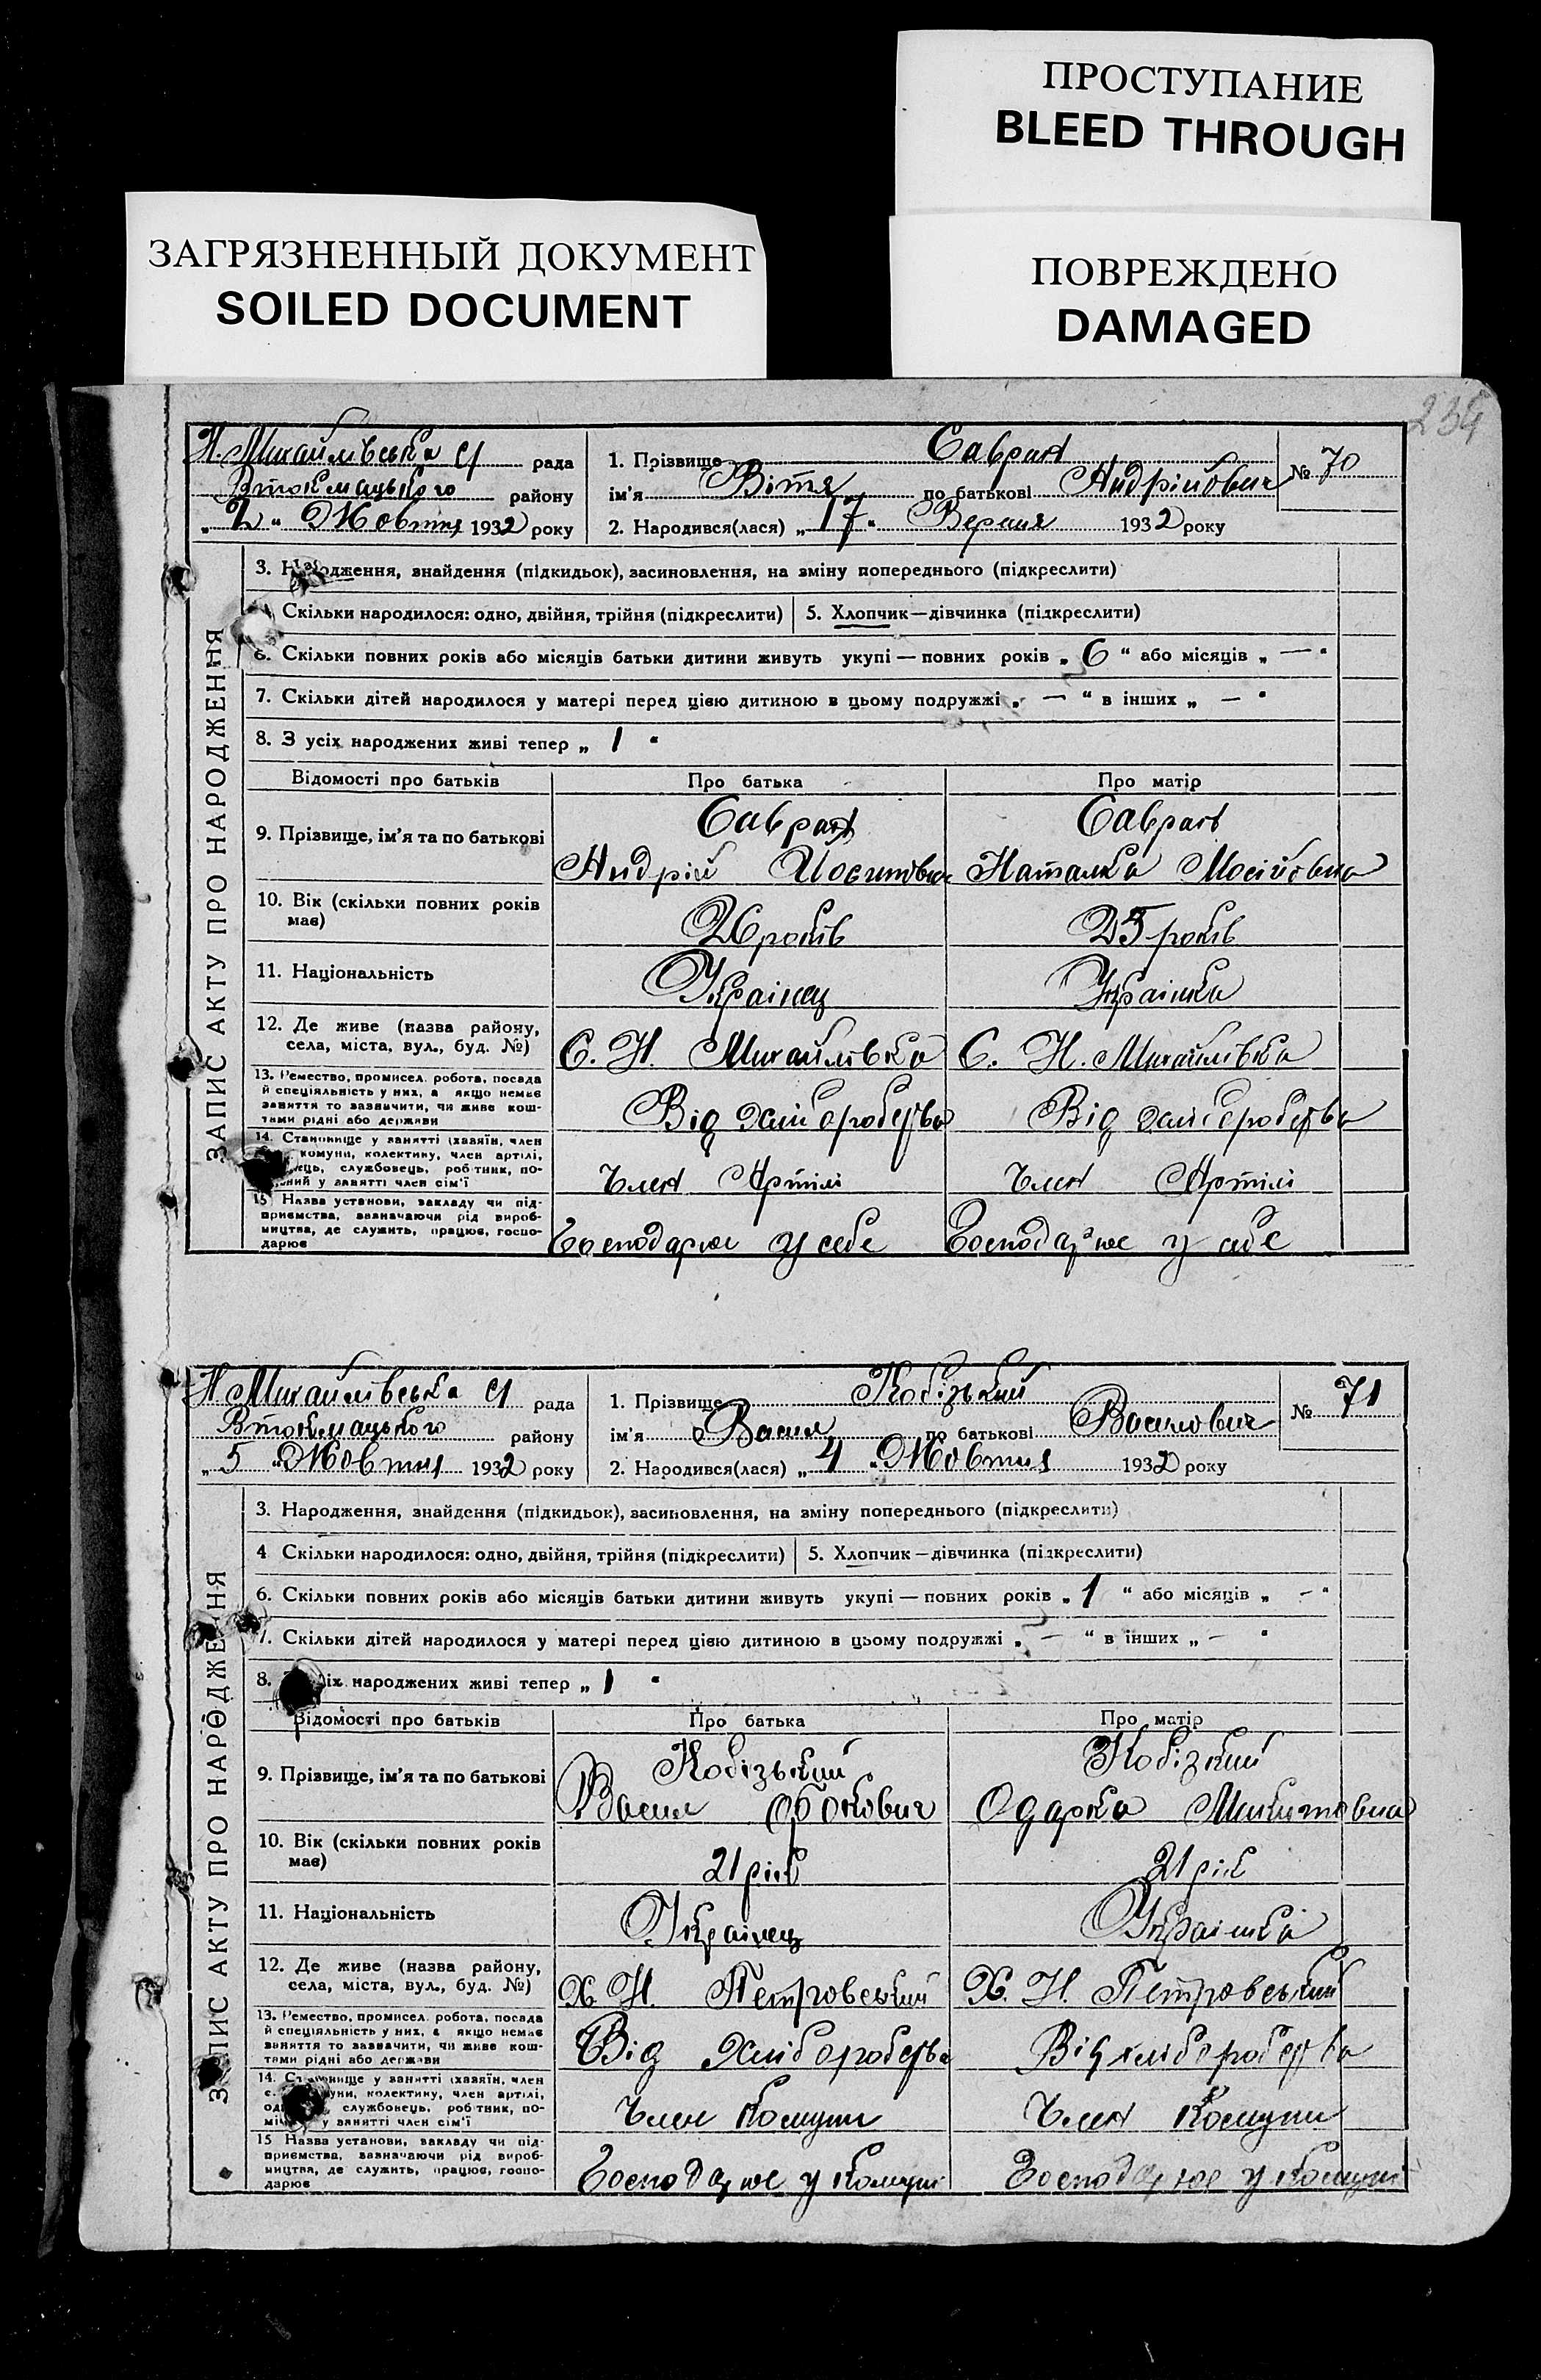 ПРОСТУПАНИЕ
BLEED THROUGH
ЗАГРЯЗНЕННЫЙ ДОКУМЕНТ
SOILED DOCUMENT
ПОВРЕЖДЕНО
DAMAGED
234
Н. Михайлівська с/ рада
Втокмацького району
„2" Жовтня 1932 року
1. Прізвище Савран
ім'я Вітя по батькові Андрійович
2. Народився(лася) „17" Вересня 1932 року
№ 70
ЗАПИС АКТУ ПРО НАРОДЖЕННЯ
3. Народження, знайдення (підкидьок), засиновлення, на зміну попереднього (підкреслити)
Скільки народилося: одно, двійня, трійня (підкреслити) 5. Хлопчик—дівчинка (підкреслити)
6. Скільки повних років або місяців батьки дитини живуть укупі — повних років „6" або місяців „—"
7. Скільки дітей народилося у матері перед цією дитиною в цьому подружжі „—" в інших „—"
8. З усіх народжених живі тепер „1"
Відомості про батьків Про батька Про матір
9. Прізвище, ім'я та по батькові Савран Савран
Андрій Йосипович Наталка Мосійовна
10. Вік (скільки повних років має) 26 років 25 років
11. Національність Українец Українка
12. Де живе (назва району, села, міста, вул., буд. №) С. Н. Михайлівка С. Н. Михайлівка
13. Ремество, промисел, робота, посада
й спеціяльність у них, а якщо немає
заняття то зазначити, чи живе кош-
тами рідні або держави
Від хліборобства Від хліборобства
14. Становище у занятті (хазяїн, член
комуни, колективу, член артілі,
службовець, робітник, по-
у занятті член сім'ї
Член Артілі Член Артілі
15 Назва установи, закладу чи під-
приємства, зазначаючи рід вироб-
ництва, де служить, працює, госпо-
дарює
Господарює у себе Господарює у себе
Н. Михайлівська с/ рада
Втокмацького району
„5" Жовтня 1932 року
1. Прізвище Кобізький
ім'я Васил по батькові Васильович
2. Народився(лася) „4" Жовтня 1932 року
№ 71
ЗАПИС АКТУ ПРО НАРОДЖЕННЯ
3. Народження, знайдення (підкидьок), засиновлення, на зміну попереднього (підкреслити)
4 Скільки народилося: одно, двійня, трійня (підкреслити) 5. Хлопчик—дівчинка (підкреслити)
6. Скільки повних років або місяців батьки дитини живуть укупі — повних років „1" або місяців „—"
7. Скільки дітей народилося у матері перед цією дитиною в цьому подружжі „—" в інших „—"
8. усіх народжених живі тепер „1"
Відомості про батьків Про батька Про матір
9. Прізвище, ім'я та по батькові Кобізький Кобізкий
Васил Одарка Микитовна
10. Вік (скільки повних років має) 21 рік 21 рік
11. Національність Українец Українка
12. Де живе (назва району, села, міста, вул., буд. №) Х. Н. Петровський Х. Н. Петровський
13. Ремество, промисел, робота, посада
й спеціяльність у них, а якщо немає
заняття то зазначити, чи живе кош-
тами рідні або держави
Від хліборобства Від хліборобства
14. Становище у занятті (хазяїн, член
комуни, колективу, член артілі,
службовець, робітник, по-
у занятті член сім'ї
Член Комуни Член Комуни
15 Назва установи, закладу чи під-
приємства, зазначаючи рід вироб-
ництва, де служить, працює, госпо-
дарює
Господарює у комуні Господарює у комуні